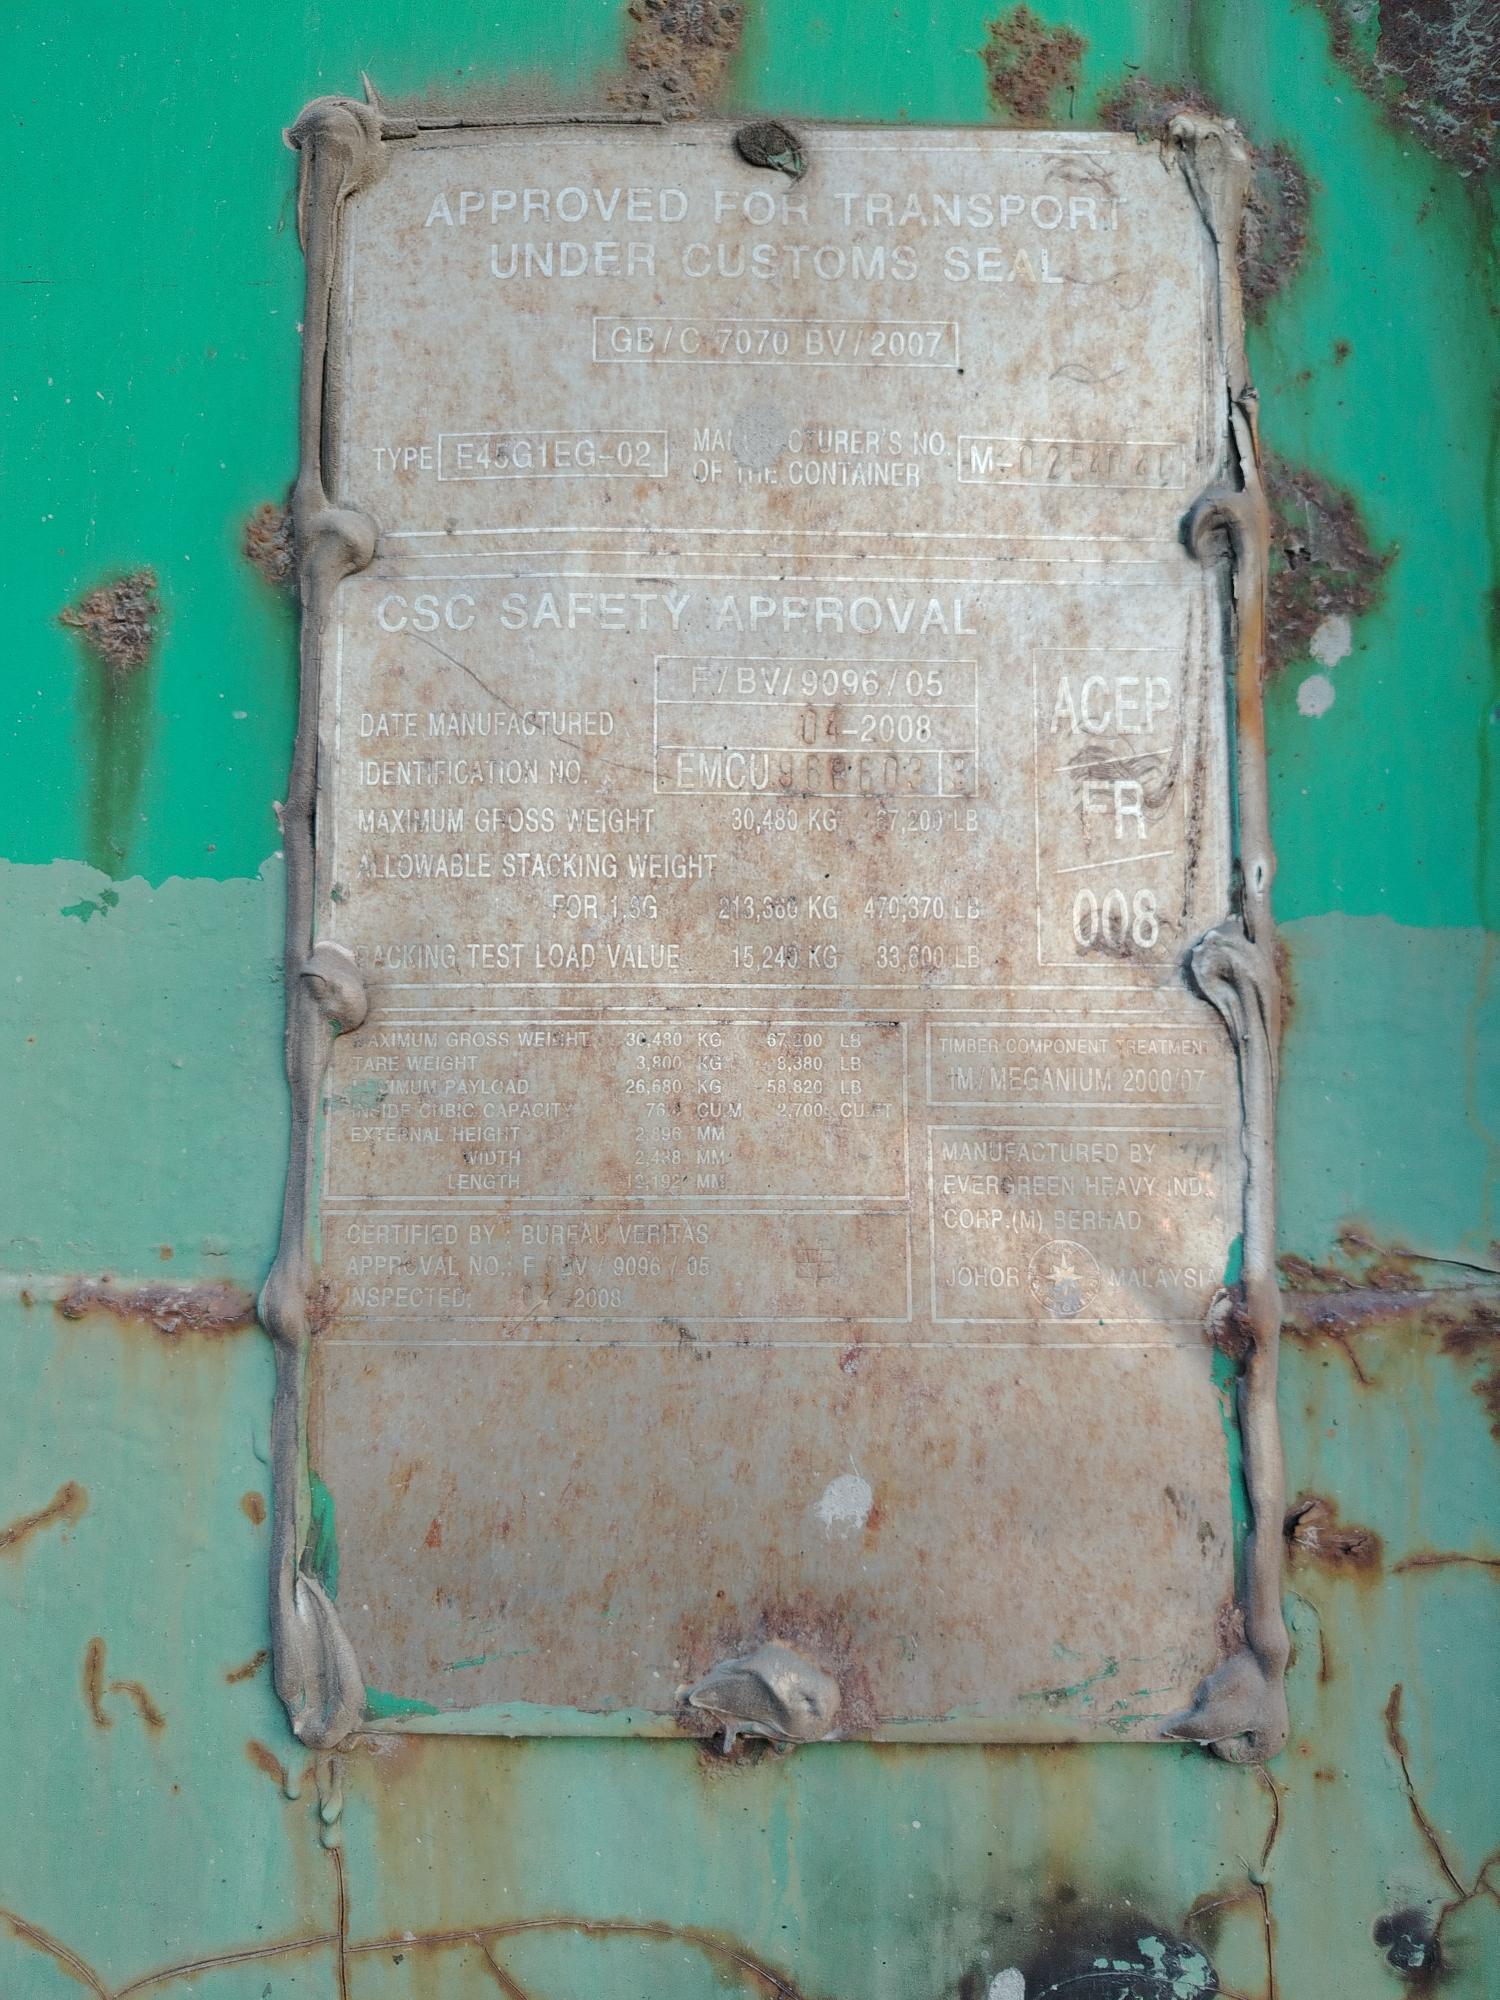 APPROVED FOR TRANSPORT
UNDER CUSTOMS SEAL
GB/C 7070 BV/2007
TYPE E45G1EG-02 MANUFACTURER'S NO. OF THE CONTAINER M-
CSC SAFETY APPROVAL
F/BV/9096/05
DATE MANUFACTURED 04-2008
IDENTIFICATION NO. EMCU 968603 3
MAXIMUM GROSS WEIGHT 30,480 KG 67,200 LB
ALLOWABLE STACKING WEIGHT
FOR 1.8G 213,360 KG 470,370 LB
RACKING TEST LOAD VALUE 15,240 KG 33,600 LB
ACEP
FR
008
MAXIMUM GROSS WEIGHT 30,480 KG 67,200 LB
TARE WEIGHT 3,800 KG 8,380 LB
MAXIMUM PAYLOAD 26,680 KG 58,820 LB
INSIDE CUBIC CAPACITY CU.M 2,700 CU.FT
EXTERNAL HEIGHT 2,896 MM
WIDTH 2,438 MM
LENGTH 12,192 MM
TIMBER COMPONENT TREATMENT
IM/MEGANIUM 2000/07
MANUFACTURED BY
EVERGREEN HEAVY IND.
CORP.(M) BERHAD
JOHOR MALAYSIA
CERTIFIED BY : BUREAU VERITAS
APPROVAL NO.: F / BV / 9096 / 05
INSPECTED: -2008